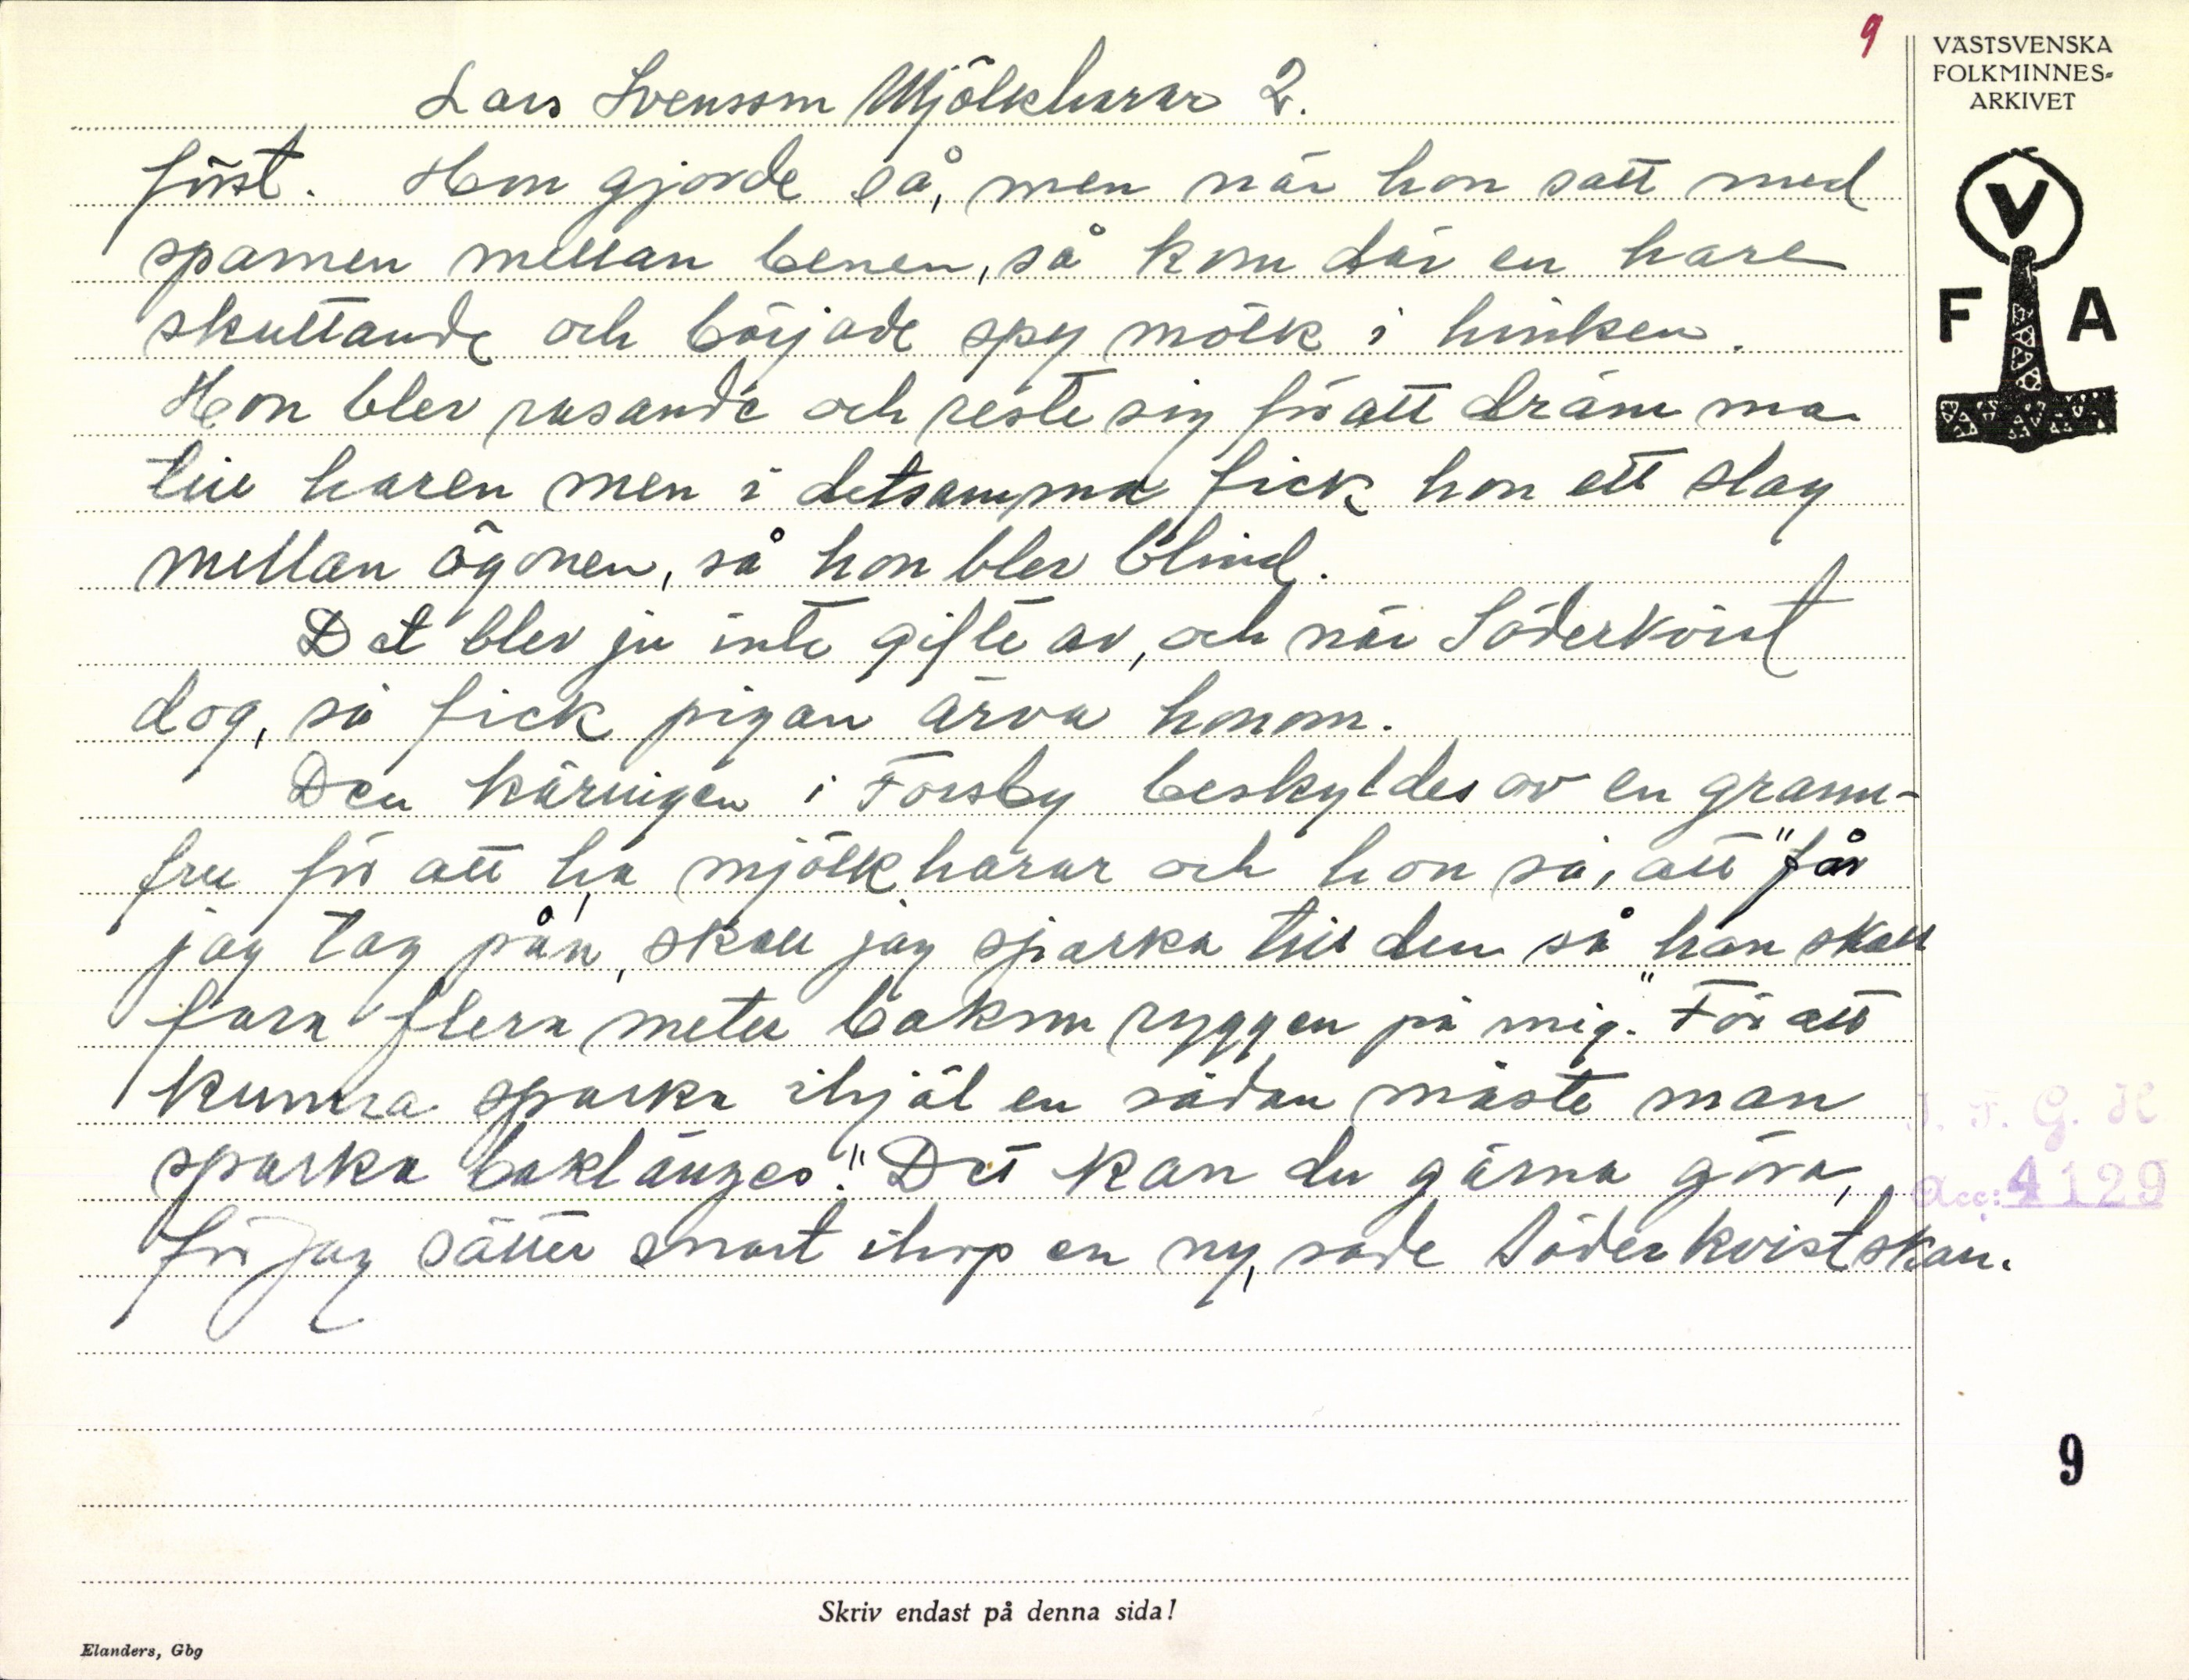 9
VÄSTSVENSKA
FOLKMINNES-
ARKIVET
V
F A
Lars Svensson Mjölkharar 2.
först. Hon gjorde så, men när hon satt med
spannen mellan benen, så kom där en hare
skuttande och började spy mölk i hinken.
Hon blev rasande och reste sig för att dräm ma
till haren men i detsamma fick hon ett slag
mellan ögonen, så hon blev blind.
Det blev ju inte gifte av, och när Söderkvist
dog, så fick pigan ärva honom.
Den käringen i Forsby beskyldes av en grann-
fru för att ha mjölkharar och hon sa, att "får
jag tag på'n, skall jag sparka till den så han skall
fara flera meter bakom ryggen på mig." För att
kunna sparka ihjäl en sådan måste man
sparka baklänges." Det kan du gärna göra,
för jag sätter snart ihop en ny, sade Söderkvistskan.
I. F. G. H
Acc: 4129
9
Skriv endast på denna sida!
Elanders, Gbg